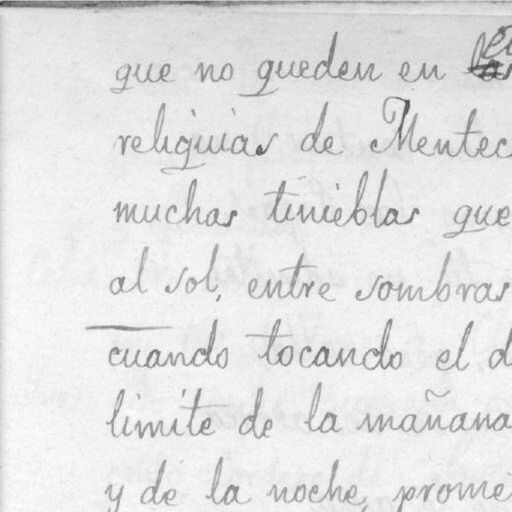 que no queden en
reliquias de Mentec
muchas tinieblas que
al sol, entre sombras
cuando tocando el d
limite de la mañana
y de la noche, prome